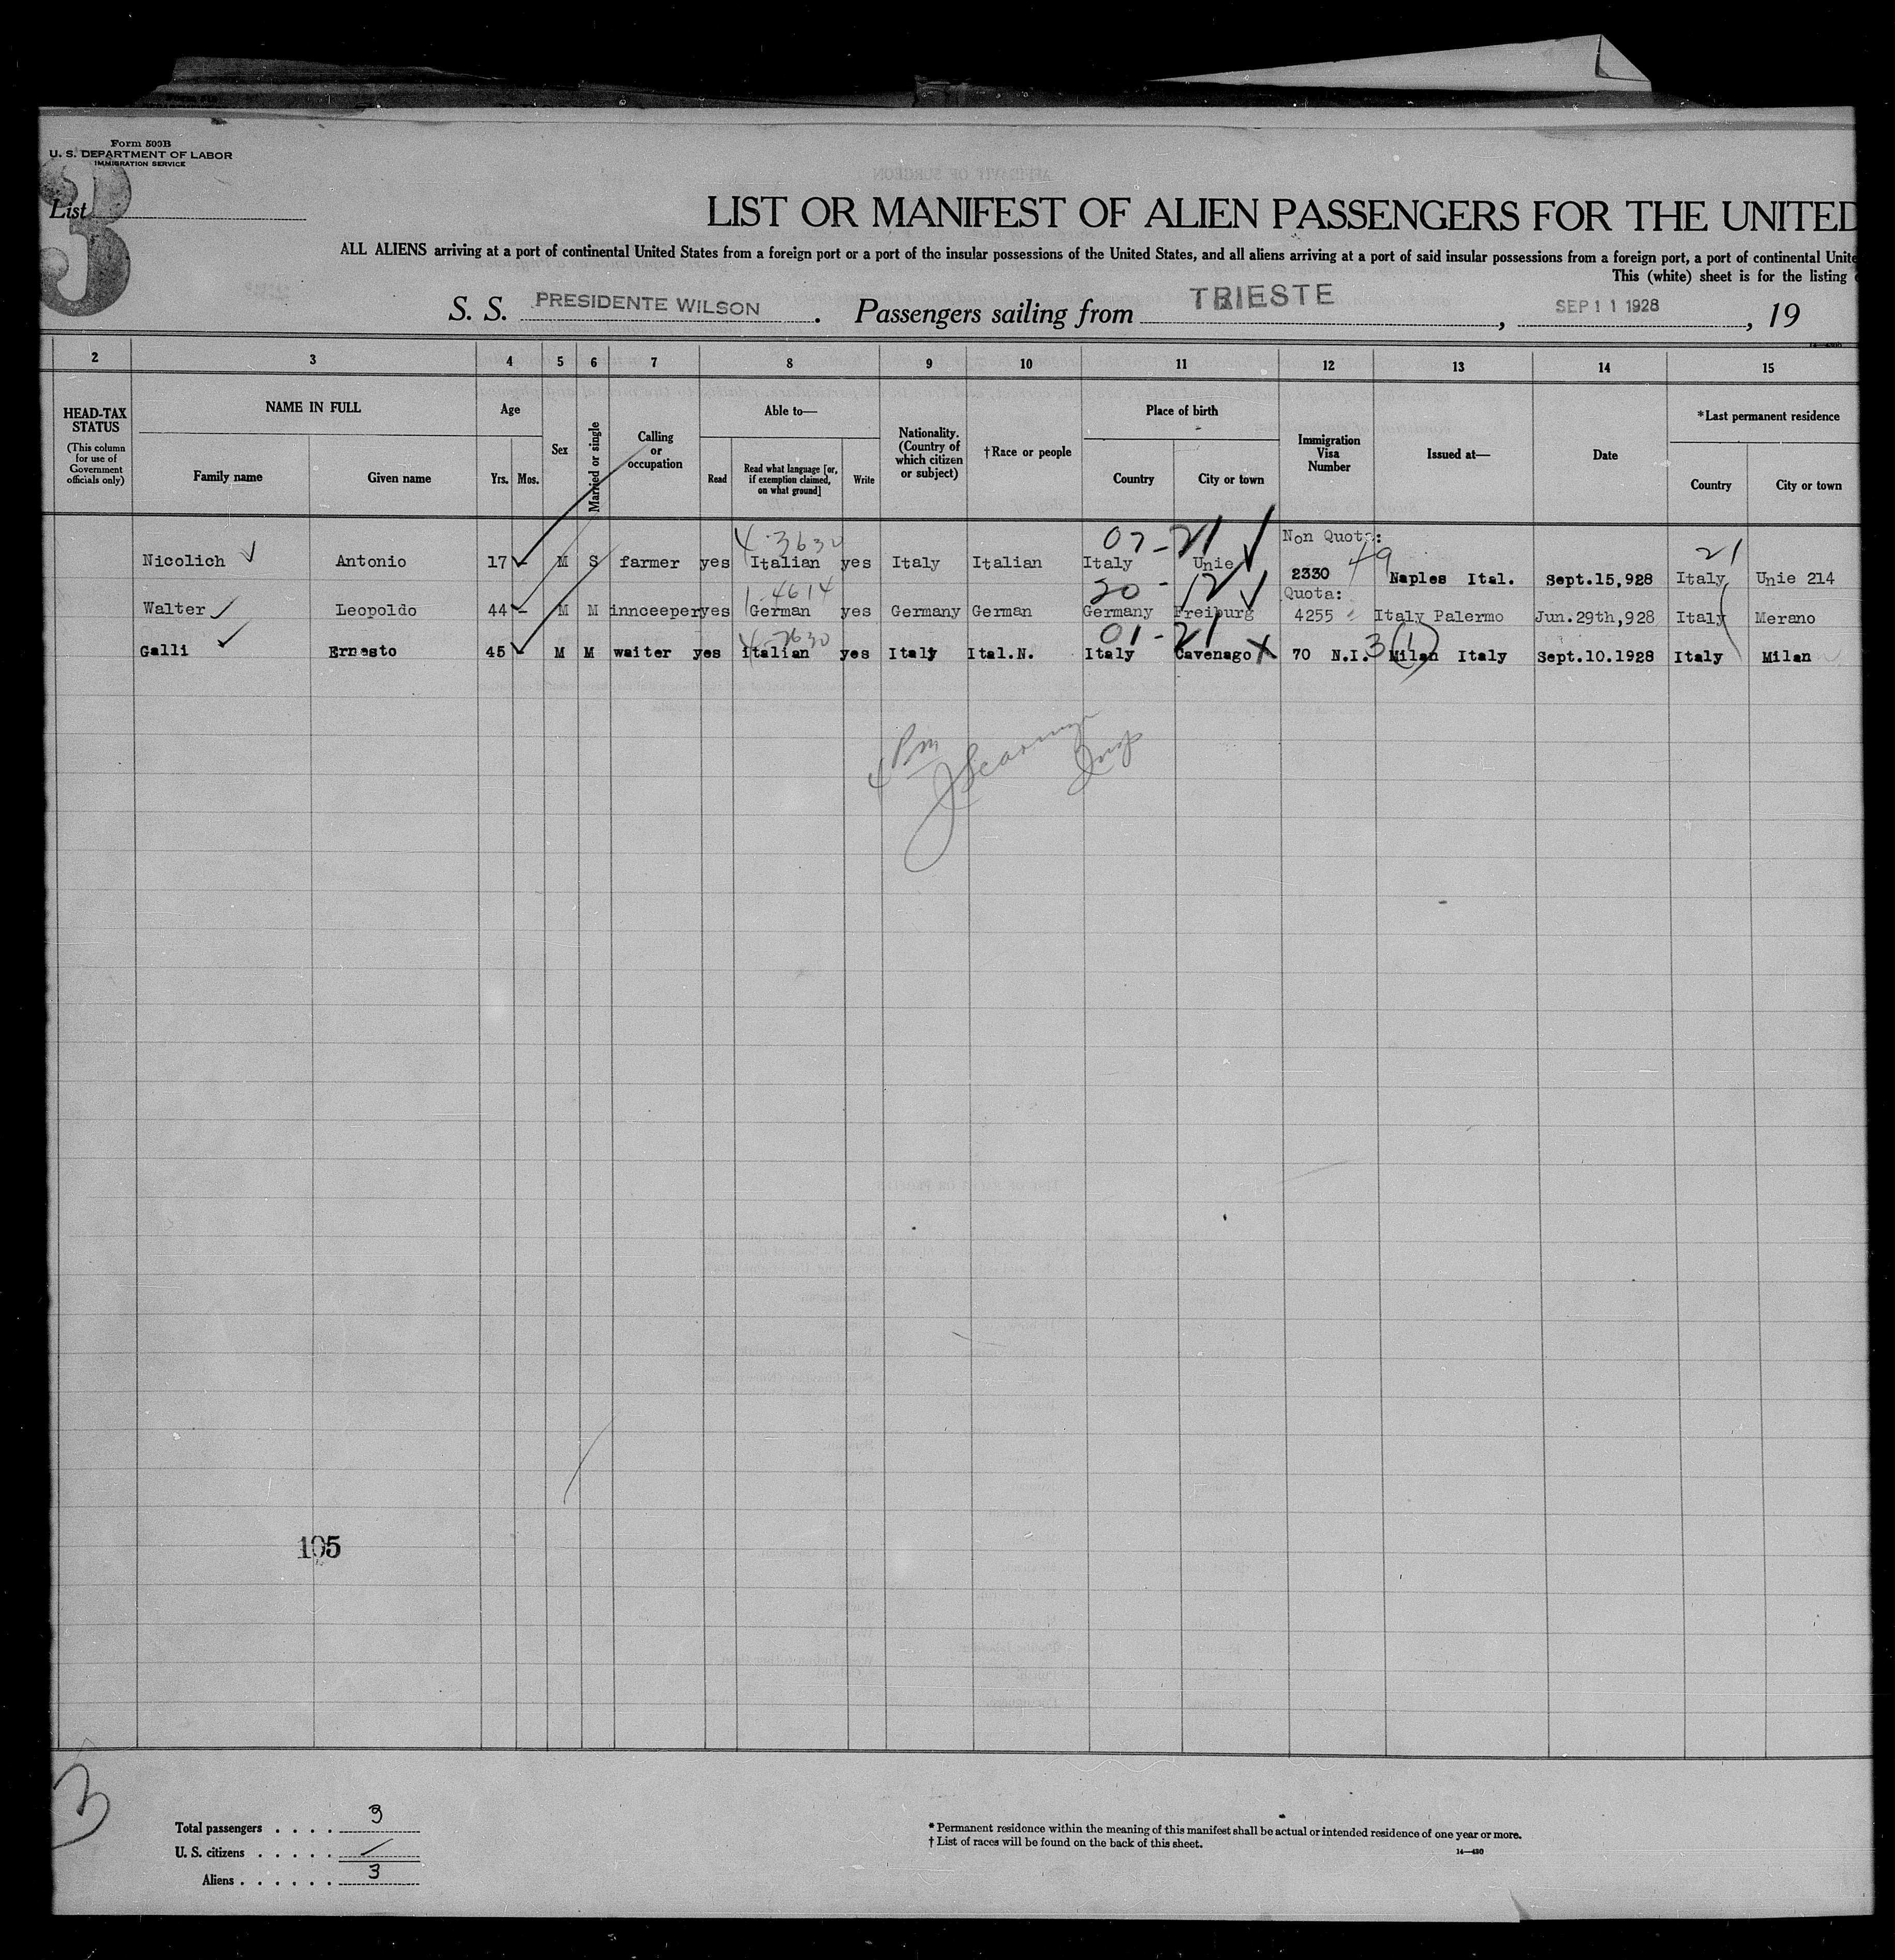 Form 500B
U. S. DEPARTMENT OF LABOR
IMMIGRATION SERVICE
3
List
LIST OR MANIFEST OF ALIEN PASSENGERS FOR THE UNITED
ALL ALIENS arriving at a port of continental United States from a foreign port or a port of the insular possessions of the United States, and all aliens arriving at a port of said insular possessions from a foreign port, a port of continental Unite
This (white) sheet is for the listing
S. S. PRESIDENTE WILSON. Passengers sailing from TRIESTE, SEP 11 1928, 19
2 3 4 5 6 7 8 9 10 11 12 13 14 15
HEAD-TAX STATUS (This column for use of Government officials only)
NAME IN FULL Family name Given name
Age Yrs. Mos.
Sex
Married or single
Calling or occupation
Able to— Read Read what language [or, if exemption claimed, on what ground] Write
Nationality. (Country of which citizen or subject)
†Race or people
Place of birth Country City or town
Immigration Visa Number
Issued at—
Date
*Last permanent residence Country City or town
4-3630 07-21 Non Quota: 49 21
Nicolich Antonio 17 - M S farmer yes Italian yes Italy Italian Italy Unie 2330 Naples Ital. Sept.15,928 Italy Unie 214
1-4614 20-12 Quota:
Walter Leopoldo 44 - M M innceeper yes German yes Germany German Germany Freiburg 4255 Italy Palermo Jun.29th,928 Italy Merano
4-3630 01-21
Galli Ernesto 45 - M M waiter yes italian yes Italy Ital.N. Italy Cavenago X 70 N.I. 3 (1) Milan Italy Sept.10.1928 Italy Milan
4 Pm
Insp
105
3
Total passengers . . . . 3
U. S. citizens . . . . .
Aliens . . . . . . 3
* Permanent residence within the meaning of this manifest shall be actual or intended residence of one year or more.
† List of races will be found on the back of this sheet.
14—430